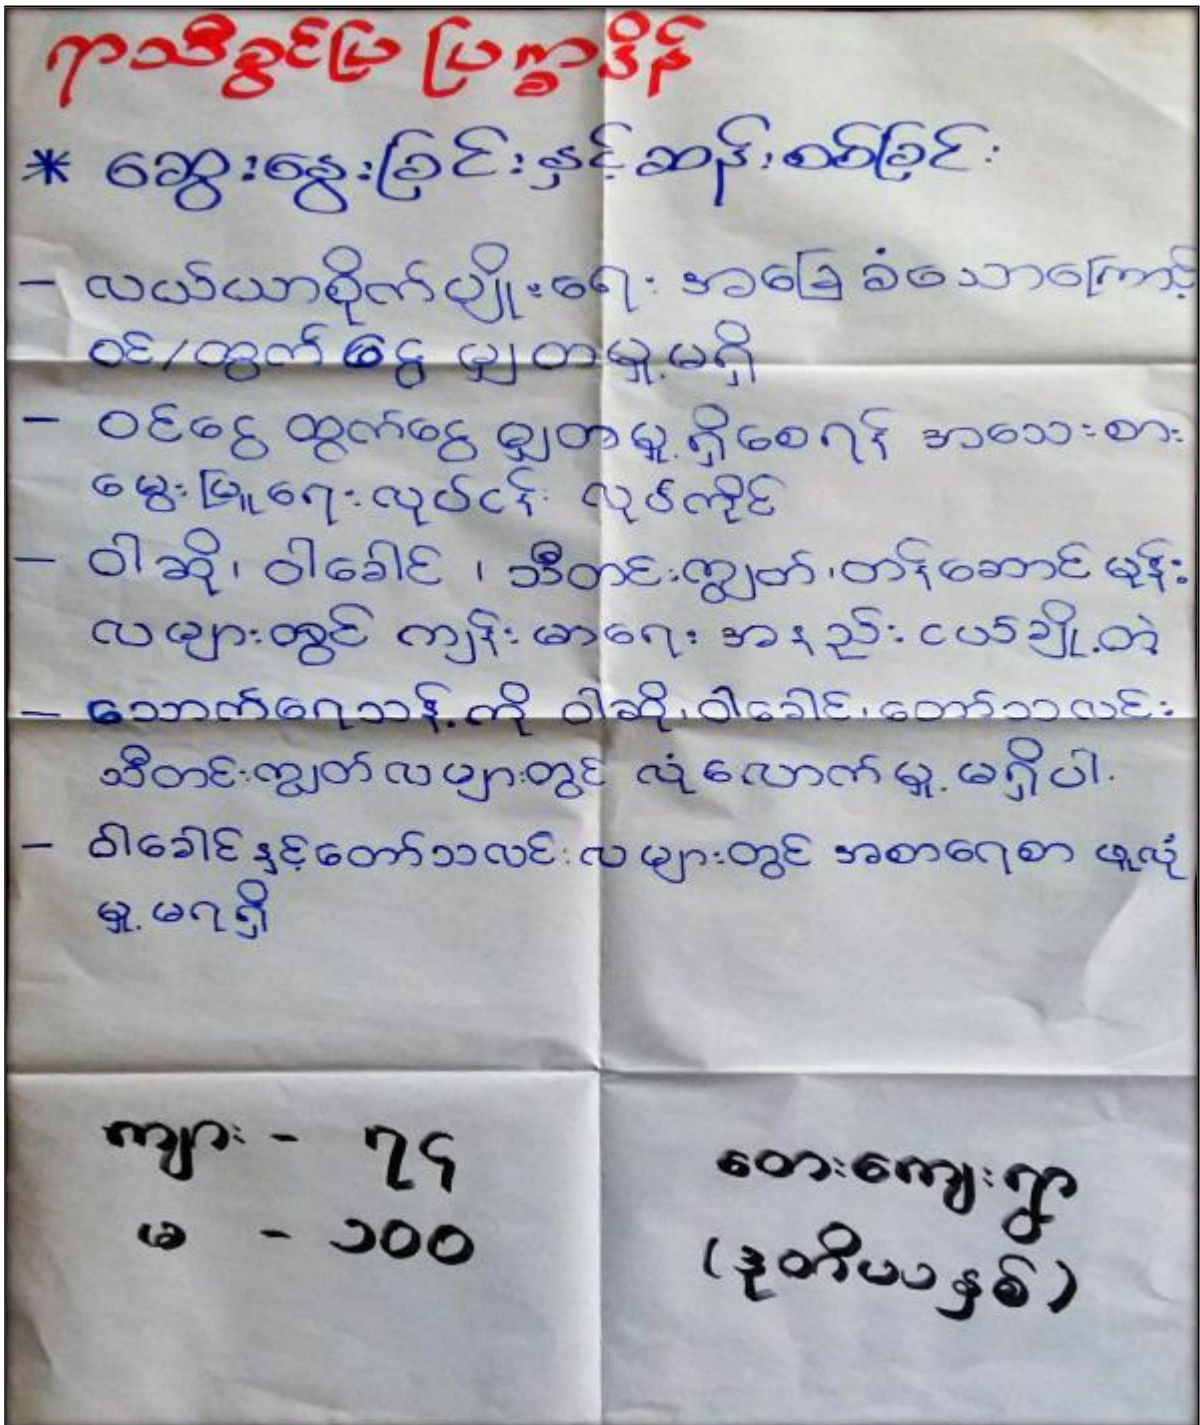 ရာသီခွင်ပြ ပြက္ခဒိန်
* ဆွေးနွေးခြင်းနှင့်ဆန်းစစ်ခြင်း
- လယ်ယာစိုက်ပျိုးရေး အခြေခံသောကြောင့်
ဝင်/ထွက်ငွေ မျှတမှု့မရှိ
- ဝင်ငွေ ထွက်ငွေ မျှတမှု့ရှိစေရန် အသေးစား
မွေးမြူရေးလုပ်ငန်း လုပ်ကိုင်
- ဝါဆို၊ ဝါခေါင် ၊ သီတင်းကျွတ်၊တန်ဆောင်မုန်း
လများတွင် ကျန်းမာရေး အနည်းငယ်ချို့တဲ့
- သောက်ရေသန့်ကို ဝါဆို၊ဝါခေါင်၊တော်သလင်း
သီတင်းကျွတ်လများတွင် လုံလောက်မှု့မရှိပါ.
- ဝါခေါင်နှင့်တော်သလင်းလများတွင် အစာရေစာ ဖူလုံ
မှု့မရရှိ
ကျား - ၇၄
မ - ၁၀၀
တေးကျေးရွာ
(ဒုတိယနှစ်)